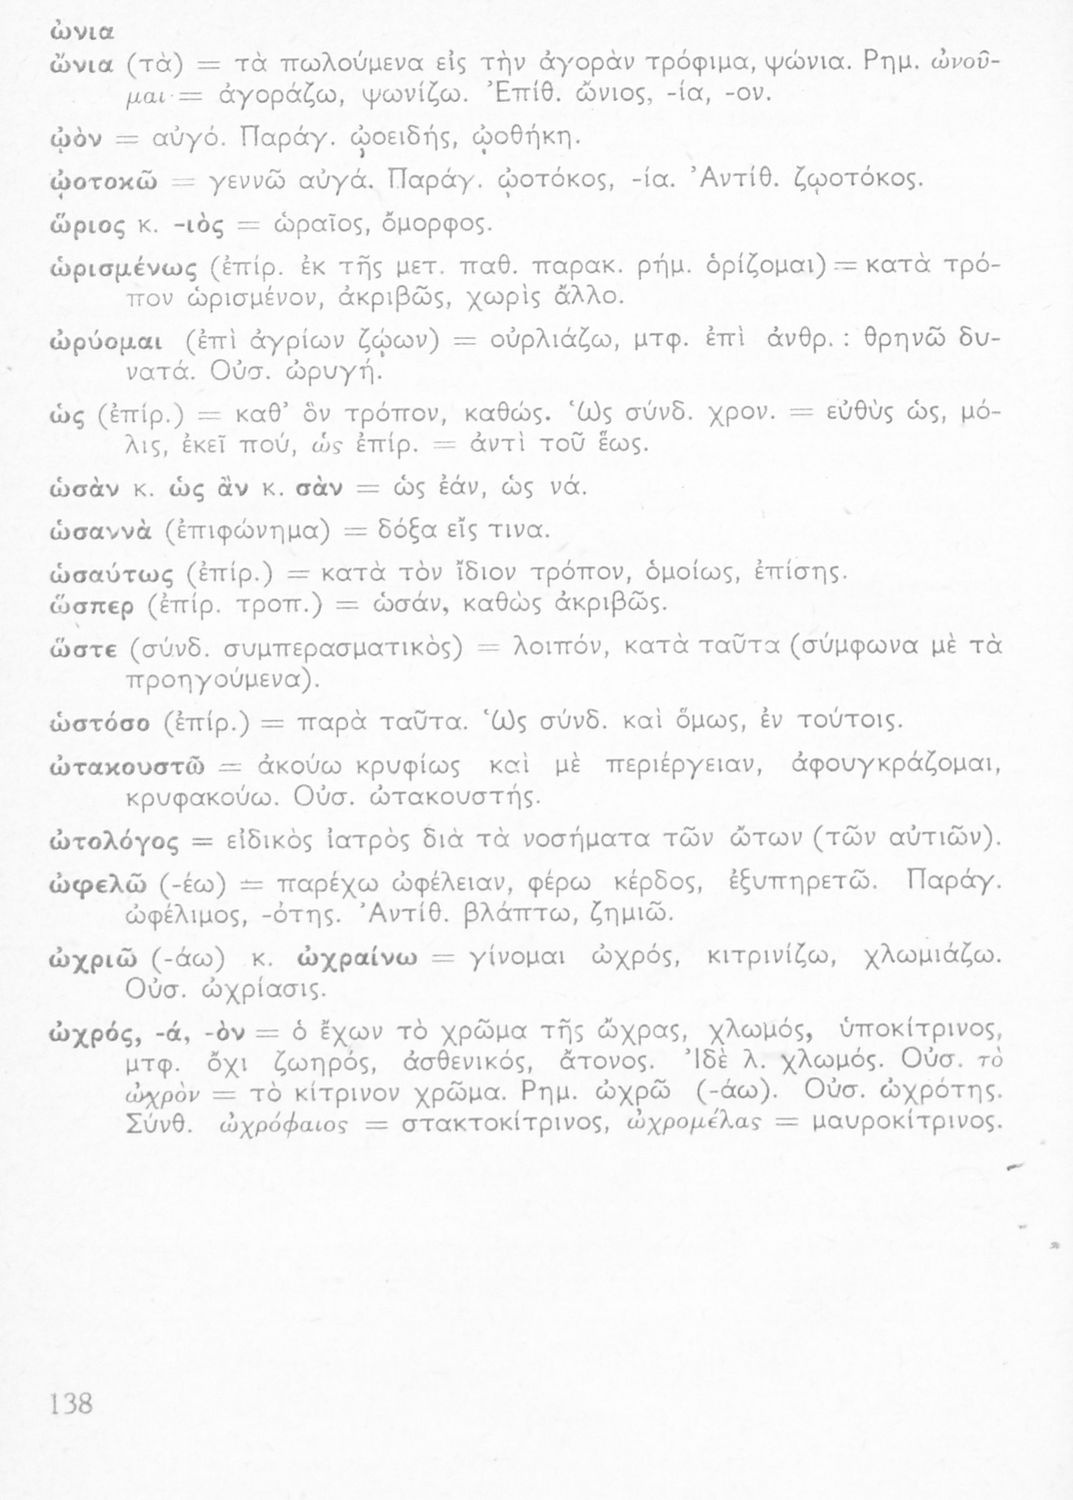 ὠνια
ὤνια (τὰ) = τὰ πωλούμενα εἰς τὴν ἀγορὰν τρόφιμα, ψώνια. Ρημ. ὠνοῦ-
μαι = ἀγοράζω, ψωνίζω. Ἐπίθ. ὤνιος, -ία, -ον.
ᾠὸν = αὐγό. Παράγ. ᾠοειδής, ᾠοθήκη.
ᾠοτοκῶ = γεννῶ αὐγά. Παράγ. ᾠοτόκος, -ία. Ἀντίθ. ζῳοτόκος.
ὥριος κ. -ιὸς = ὡραῖος, ὄμορφος.
ὡρισμένως (ἐπίρ. ἐκ τῆς μετ. παθ. παρακ. ρήμ. ὁρίζομαι) = κατὰ τρό-
πον ὡρισμένον, ἀκριβῶς, χωρὶς ἄλλο.
ὠρύομαι (ἐπὶ ἀγρίων ζῴων) = οὐρλιάζω, μτφ. ἐπὶ ἀνθρ. : θρηνῶ δυ-
νατά. Οὐσ. ὠρυγή.
ὡς (ἐπίρ.) = καθ’ ὃν τρόπον, καθώς. Ὡς σύνδ. χρον. = εὐθὺς ὡς, μό-
λις, ἐκεῖ πού, ὡς ἐπίρ. = ἀντὶ τοῦ ἕως.
ὡσὰν κ. ὡς ἂν κ. σὰν = ὡς ἐάν, ὡς νά.
ὡσαννὰ (ἐπιφώνημα) = δόξα εἴς τινα.
ὡσαύτως (ἐπίρ.) = κατὰ τὸν ἴδιον τρόπον, ὁμοίως, ἐπίσης.
ὥσπερ (ἐπίρ. τροπ.) = ὡσάν, καθὼς ἀκριβῶς.
ὥστε (σύνδ. συμπερασματικὸς) = λοιπόν, κατὰ ταῦτα (σύμφωνα μὲ τὰ
προηγούμενα).
ὡστόσο (ἐπίρ.) = παρὰ ταῦτα. Ὡς σύνδ. καὶ ὅμως, ἐν τούτοις.
ὠτακουστῶ = ἀκούω κρυφίως καὶ μὲ περιέργειαν, ἀφουγκράζομαι,
κρυφακούω. Οὐσ. ὠτακουστής.
ὠτολόγος = εἰδικὸς ἰατρὸς διὰ τὰ νοσήματα τῶν ὤτων (τῶν αὐτιῶν).
ὠφελῶ (-έω) = παρέχω ὠφέλειαν, φέρω κέρδος, ἐξυπηρετῶ. Παράγ.
ὠφέλιμος, -ότης. Ἀντίθ. βλάπτω, ζημιῶ.
ὠχριῶ (-άω) κ. ὠχραίνω = γίνομαι ὠχρός, κιτρινίζω, χλωμιάζω.
Οὐσ. ὠχρίασις.
ὠχρός, -ά, -ὸν = ὁ ἔχων τὸ χρῶμα τῆς ὤχρας, χλωμός, ὑποκίτρινος,
μτφ. ὄχι ζωηρός, ἀσθενικός, ἄτονος. Ἰδὲ λ. χλωμός. Οὐσ. τὸ
ὠχρὸν = τὸ κίτρινον χρῶμα. Ρημ. ὠχρῶ (-άω). Οὐσ. ὠχρότης.
Σύνθ. ὠχρόφαιος = στακτοκίτρινος, ὠχρομέλας = μαυροκίτρινος.
138